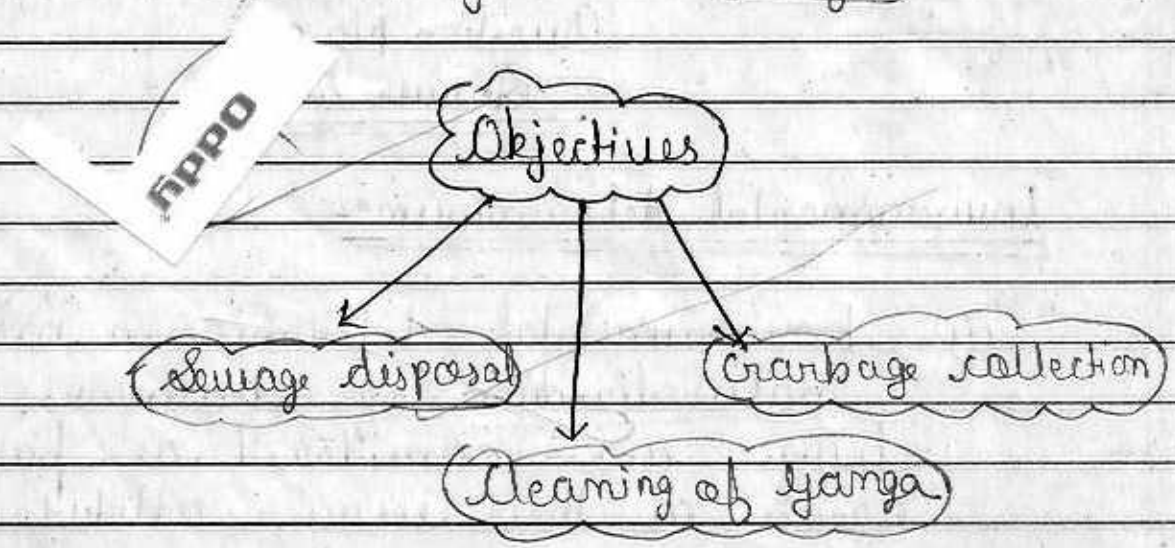 Oddy
Objectives
Sewage disposal
Garbage collection
Cleaning of Ganga